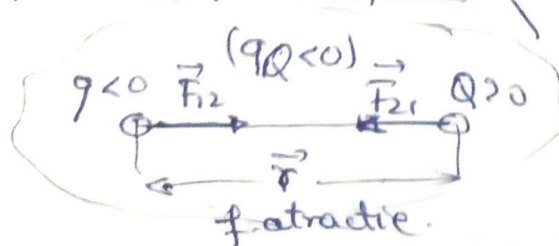 (qQ<0)
q<0 F₁₂ F₂₁ Q>0
r
f. atractie.